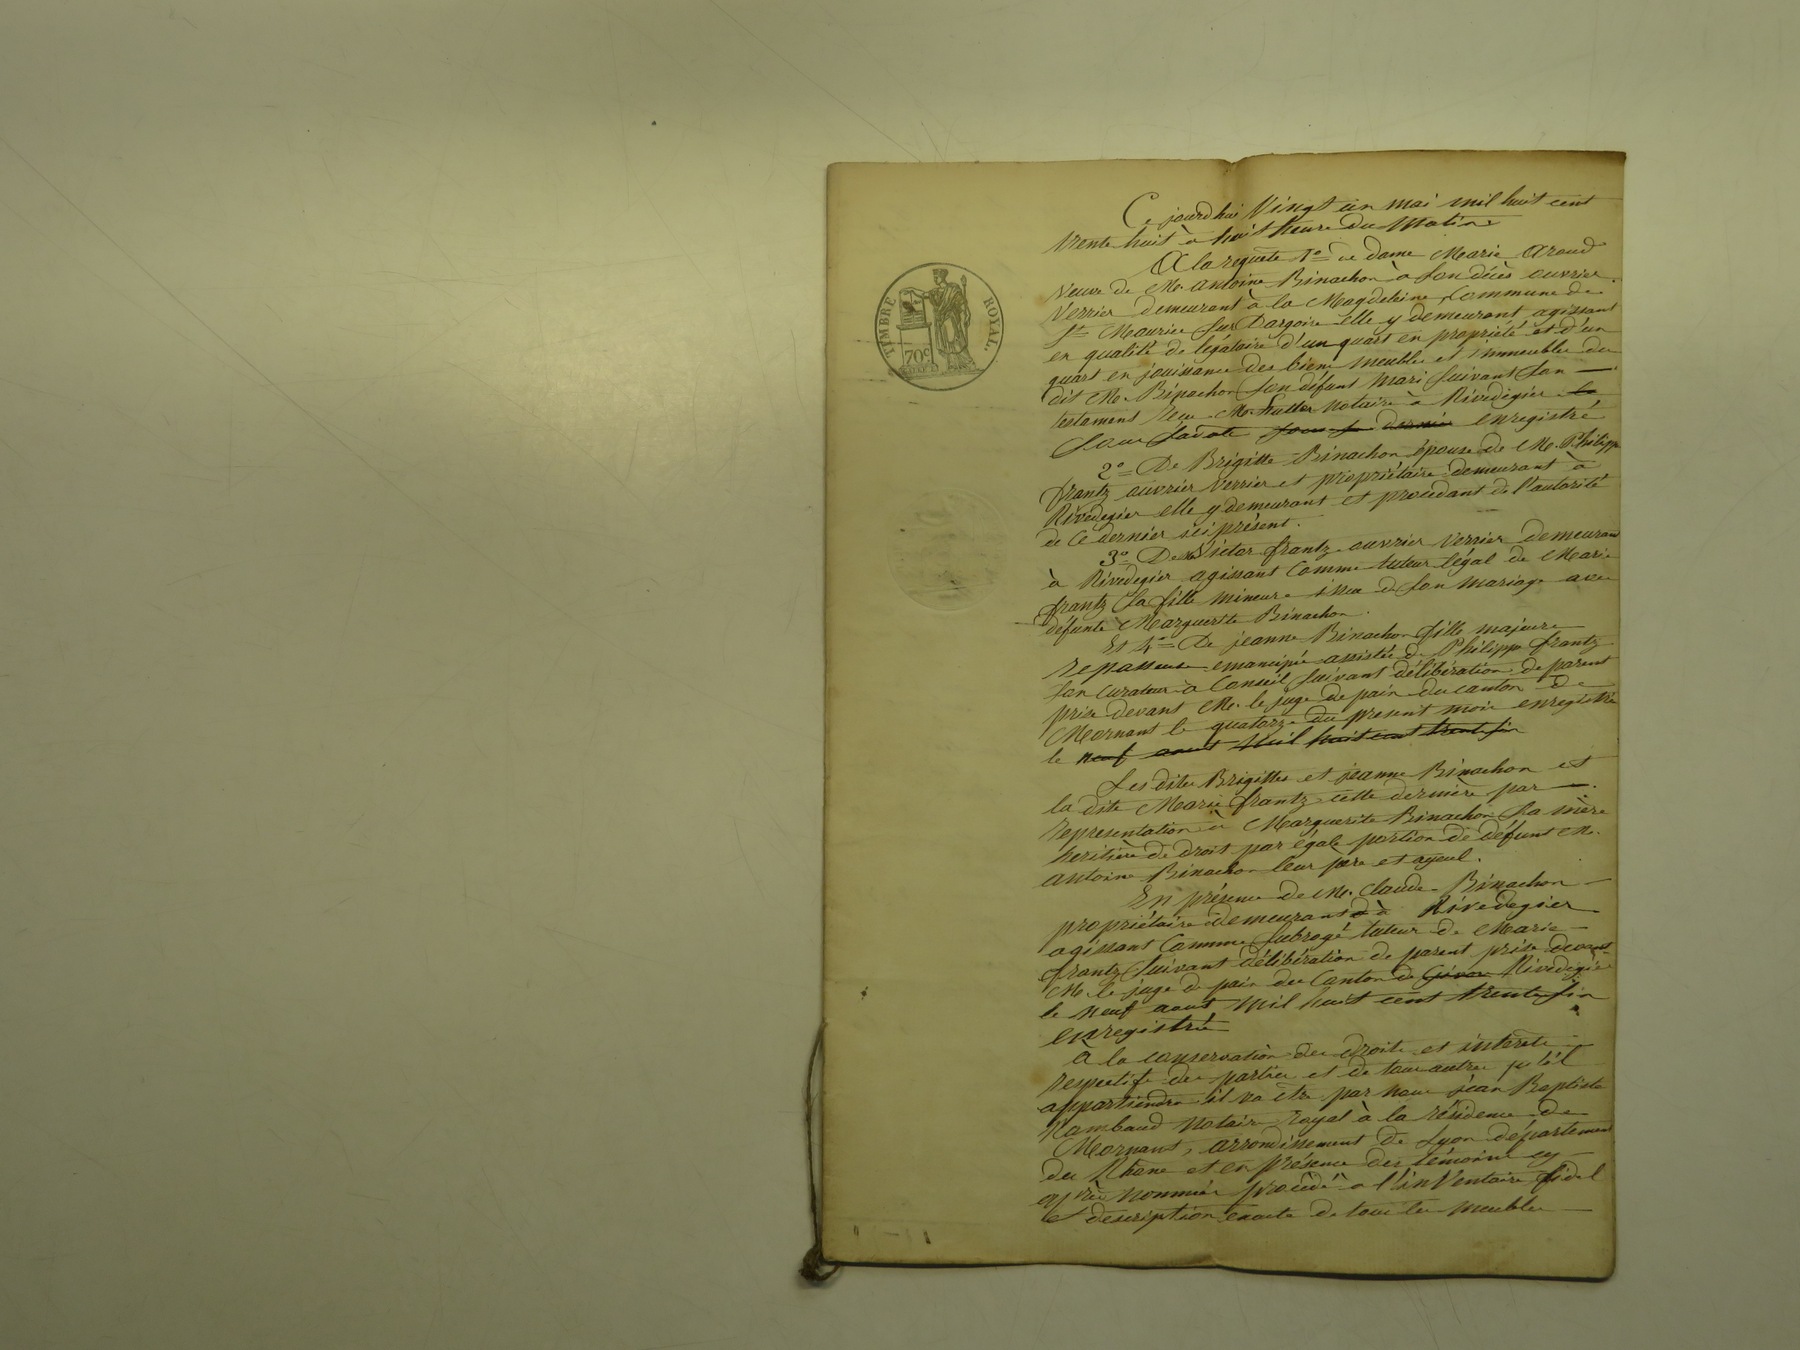 TIMBRE ROYAL.
70c
Ce jourd'hui Vingt un mai mil huit cent
trente huit à huit heure du Matin
A la requete 1° de dame Marie Araud
veuve de M. Antoine Binachon à son décès ouvrier
verrier demeurant à la Magdeleine, Commune de
St Maurice sur Dargoire elle y demeurant agissant
en qualité de légataire d'un quart en propriété et d'un
quart en jouissance des biens meubles et immeubles du
dit M. Binachon son défunt Mari suivant son
testament reçu M. notaire à Rivedegier
enregistré
2° De Brigitte Binachon épouse de M. Philippe
frantz ouvrier verrier et propriétaire demeurant à
Rivedegier elle y demeurant et procedant de l'autorité
de ce dernier ici présent.
3° De Victor frantz ouvrier verrier demeurant
à Rivedegier agissant Comme tuteur légal de Marie
frantz sa fille mineure issue de son mariage avec
défunte Marguerite Binachon.
Et 4° De jeanne Binachon fille majeure
repasseuse emancipée assistée de Philippe frantz
son curateur à Conseil suivant délibération de parent
prise devant M. le juge de paix du canton de
Mornant le quatorze du present mois enregistré
le neuf aout mil huit cent trente six
Les dites Brigitte et jeanne Binachon et
la dite Marie frantz cette dernière par
representation à Marguerite Binachon sa mère
heritière de droit par égale portion de défunt M.
antoine Binachon leur père et ayeul.
En présence de M. Claude Binachon
propriétaire demeurant à Rivedegier
agissant Comme subrogé tuteur de Marie
frantz suivant délibération de parent prise devant
M. le juge de paix du Canton de Givors Rivedegier
le neuf aout mil huit cent trente six
enregistrée
à la conservation des droits et intérêts
respectifs des parties et de tous autres qu'il
appartiendra il va être par nous jean Baptiste
Rambaud Notaire royal à la résidence de
Mornant, arrondissement de Lyon département
du Rhone et en présence des témoins cy
après nommés procédé à l'inventaire fidel
et description exacte de tous les meubles